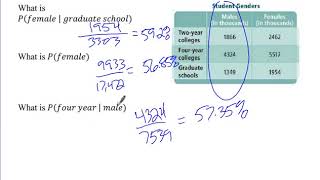 Student Genders
Males (in thousands) Females (in thousands)
Two-year colleges 1866 2462
Four-year colleges 4324 5517
Graduate schools 1349 1954
What is
P(female | graduate school)
1954
3303 = 59.2%
What is P(female)
9933
17,472 = 56.85%
What is P(four year | male)
4324
7539 = 57.35%